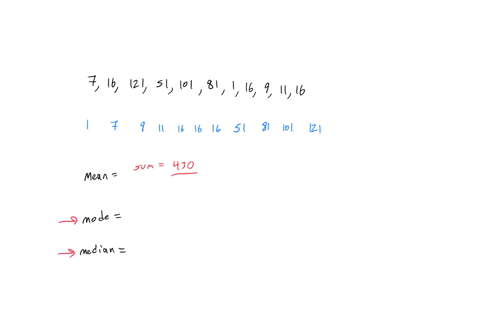 7, 16, 121, 51, 101, 81, 1, 16, 9, 11, 16
1 7 9 11 16 16 16 51 81 101 121
Mean = sum = 430
→ mode =
→ median =